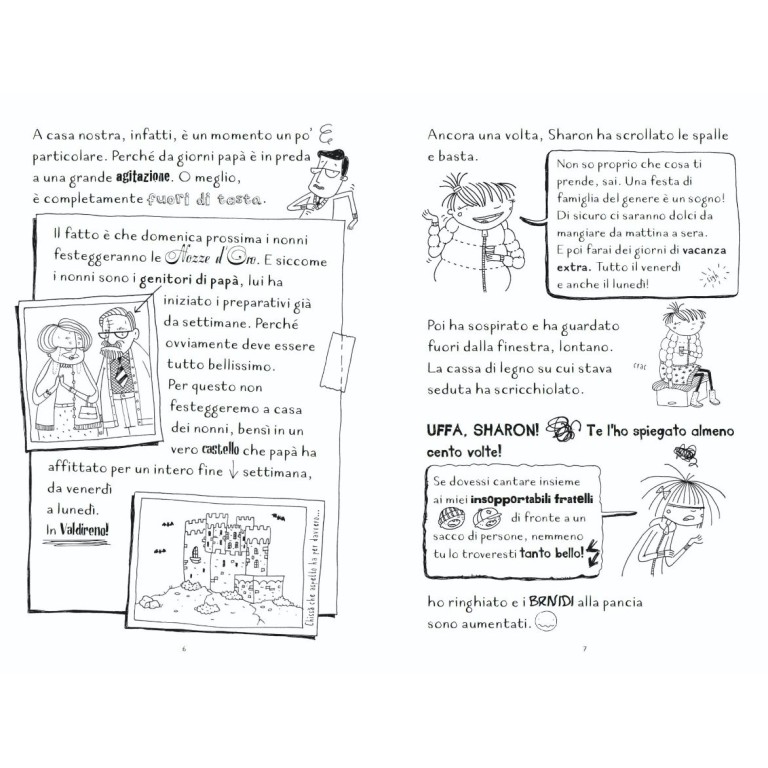 A casa nostra, infatti, è un momento un po'
particolare. Perché da giorni papà è in preda
a una grande agitazione. O meglio,
è completamente fuori di testa.
Il fatto è che domenica prossima i nonni
festeggeranno le Nozze d'Oro. E siccome
i nonni sono i genitori di papà, lui ha
iniziato i preparativi già
da settimane. Perché
ovviamente deve essere
tutto bellissimo.
Per questo non
festeggeremo a casa
dei nonni, bensì in un
vero castello che papà ha
affittato per un intero fine settimana,
da venerdì
a lunedì.
In Valdireno!
Chissà che aspetto ha per davvero...
6
Ancora una volta, Sharon ha scrollato le spalle
e basta.
Non so proprio che cosa ti
prende, sai. Una festa di
famiglia del genere è un sogno!
Di sicuro ci saranno dolci da
mangiare da mattina a sera.
E poi farai dei giorni di vacanza
extra. Tutto il venerdì
e anche il lunedì!
Poi ha sospirato e ha guardato
fuori dalla finestra, lontano.
La cassa di legno su cui stava
seduta ha scricchiolato.
crac
UFFA, SHARON! Te l'ho spiegato almeno
cento volte!
Se dovessi cantare insieme
ai miei insopportabili fratelli
di fronte a un
sacco di persone, nemmeno
tu lo troveresti tanto bello!
ho ringhiato e i BRIVIDI alla pancia
sono aumentati.
7